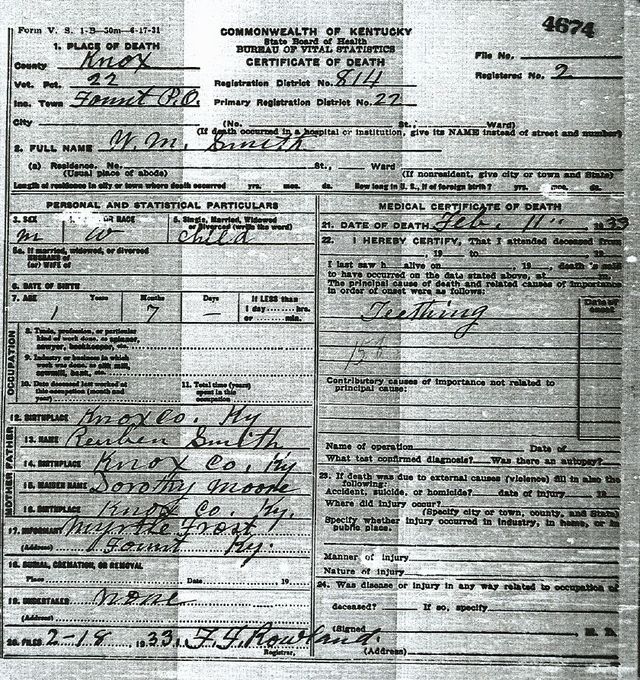 Form V. S. 1-B—50m—6-17-31
COMMONWEALTH OF KENTUCKY
4674
State Board of Health
BUREAU OF VITAL STATISTICS
CERTIFICATE OF DEATH
1. PLACE OF DEATH
County Knox
File No.
Vot. Pct. 22
Registration District No. 814
Registered No. 2
Inc. Town Fount P.O.
Primary Registration District No. 22
City (No. St., Ward)
(If death occurred in a hospital or institution, give its NAME instead of street and number)
2. FULL NAME W. M. Smith
(a) Residence. No. St., Ward
(Usual place of abode) (If nonresident, give city or town and State)
Length of residence in city or town where death occurred yrs. mos. ds. How long in U. S., if of foreign birth? yrs. mos. ds.
PERSONAL AND STATISTICAL PARTICULARS
3. SEX
m
OR RACE
W
5. Single, Married, Widowed
or Divorced (write the word)
child
5a. If married, widowed, or divorced
HUSBAND of
(or) WIFE of
6. DATE OF BIRTH
7. AGE Years Months Days If LESS than
1 day hrs.
or min.
1 7 —
OCCUPATION
8. Trade, profession, or particular
kind of work done, as spinner,
sawyer, bookkeeper, etc.
9. Industry or business in which
work was done, as silk mill,
sawmill, bank, etc.
10. Date deceased last worked at
this occupation (month and
year)
11. Total time (years)
spent in this
occupation
12. BIRTHPLACE Knox Co. Ky
FATHER
13. NAME Reuben Smith
14. BIRTHPLACE Knox Co, Ky
MOTHER
15. MAIDEN NAME Dorothy Moore
16. BIRTHPLACE Knox Co. Ky.
17. INFORMANT Myrtle Frost
(Address) Fount Ky.
18. BURIAL, CREMATION, OR REMOVAL
Place Date , 19
19. UNDERTAKER none
(Address)
20. FILED 2-18 1933. F. F. Rowland.
Registrar.
MEDICAL CERTIFICATE OF DEATH
21. DATE OF DEATH Feb. 11" 33
22. I HEREBY CERTIFY, That I attended deceased from
, 19 to , 19
I last saw h alive on , 19 , death is said
to have occurred on the date stated above, at
The principal cause of death and related causes of importance
in order of onset were as follows:
Date of
onset
Teething
Contributory causes of importance not related to
principal cause:
Name of operation Date of
What test confirmed diagnosis? Was there an autopsy?
23. If death was due to external causes (violence) fill in also the
following:
Accident, suicide, or homicide? date of injury 19
Where did injury occur?
(Specify city or town, county, and State)
Specify whether injury occurred in industry, in home, or in
public place.
Manner of injury
Nature of injury
24. Was disease or injury in any way related to occupation of
deceased? If so, specify
(Signed M. D.
(Address)